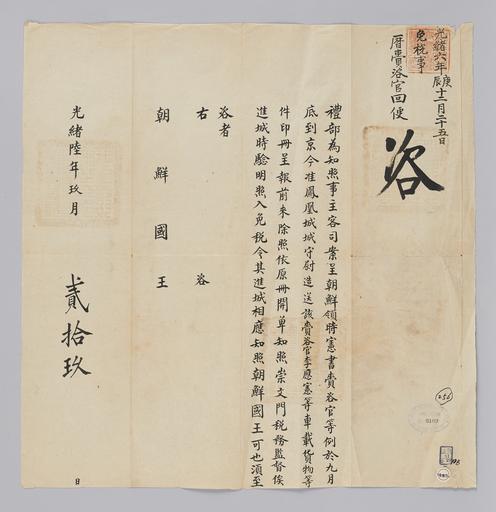 光緖六年庚辰十二月二十五日
免稅事
曆賫咨官回便
咨
禮部為知照事主客司案呈朝鮮領時憲書賫咨官等例於九月
底到京今准鳳凰城城守尉造送該賫咨官李應憲等車載貨物等
件印冊呈報前來除照依原冊開單知照崇文門稅務監督俟
進城時驗明照入免稅令其進城相應知照朝鮮國王可也須至
咨者
右 咨
朝鮮國王
光緒陸年玖月 貳拾玖 日
256